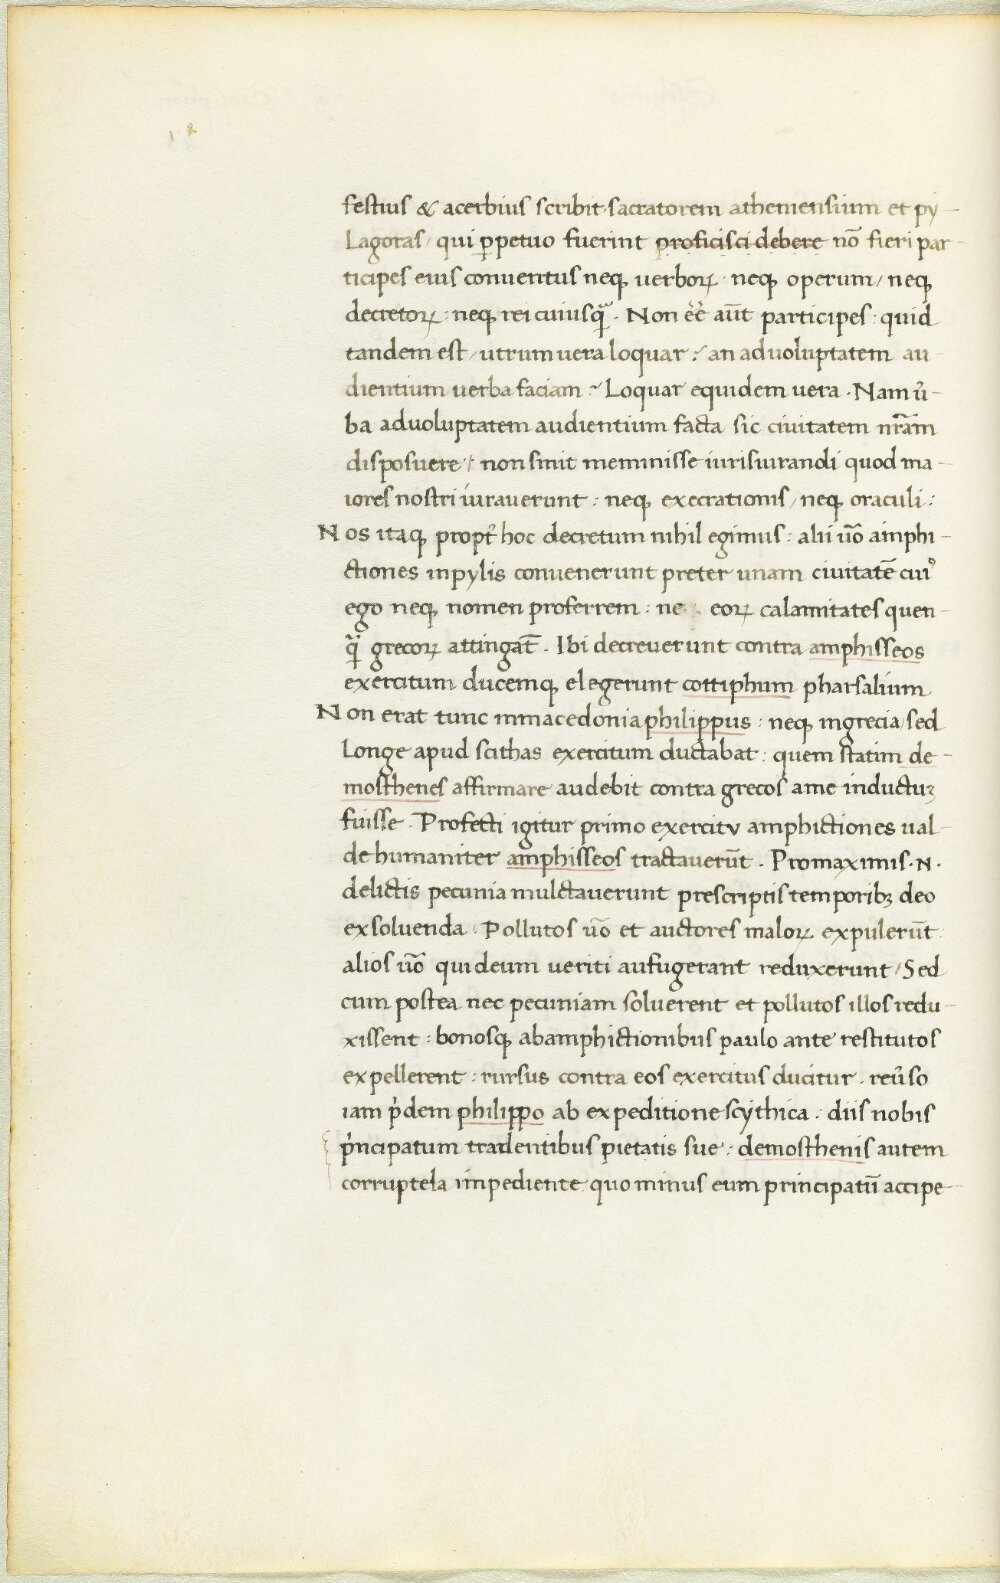 festius & acerbius scribit, sacratorem atheniensium et py-
Lagoras, qui ꝑpetuo fuerint proficisci debere nō fieri par-
ticipes eius conventus neqꝫ verboꝝ · neqꝫ operum / neqꝫ
decretoꝝ : neqꝫ rei cuiusqᷓ · Non eē aūt participes : quid
tandem est / utrum vera loquar : an ad voluptatem au-
dientium verba faciam : Loquar equidem vera · Nam u̓-
ba ad voluptatem audientium facta sic civitatem nr̄am
disposuere : non sinit meminisse iurisiurandi quod ma-
iores nostri iuraverunt : neqꝫ execrationis / neqꝫ oraculi :
Nos itaqꝫ propt̓ hoc decretum nihil egimus : alii u̅o amphi-
ctiones in pylis convenerunt preter unam civitatē cuiꝰ
ego neqꝫ nomen proferrem : ne eoꝝ calamitates quen-
qᷓ grecoꝝ attingat̄ . Ibi decreverunt contra amphisseos
exercitum ducemqꝫ elegerunt cottiphum pharsalium
Non erat tunc in macedonia philippus : neqꝫ in grecia / sed
Longe apud scithas exercitum ductabat : quem statim de-
mosthenes affirmare audebit contra grecos a me inductuꝫ
fuisse . Profecti igitur primo exercitu amphictiones val-
de humaniter amphisseos tractaverūt . Pro maximis · N ·
delictis pecunia mulctaverunt prescriptis temporibꝫ deo
exsolvenda . Pollutos u̅o et auctores maloꝝ expulerūt
alios u̅o qui deum veriti aufugerant reduxerunt / Sed
cum postea nec pecuniam solverent et pollutos illos redu-
xissent : bonosqꝫ ab amphictionibus paulo ante restitutos
expellerent : rursus contra eos exercitus ducitur . reu̓so
iam p̓dem philippo ab expeditione scythica . diis nobis
p̓ncipatum tradentibus pietatis sue : demosthenis autem
corruptela impediente quo minus eum principatū accipe-